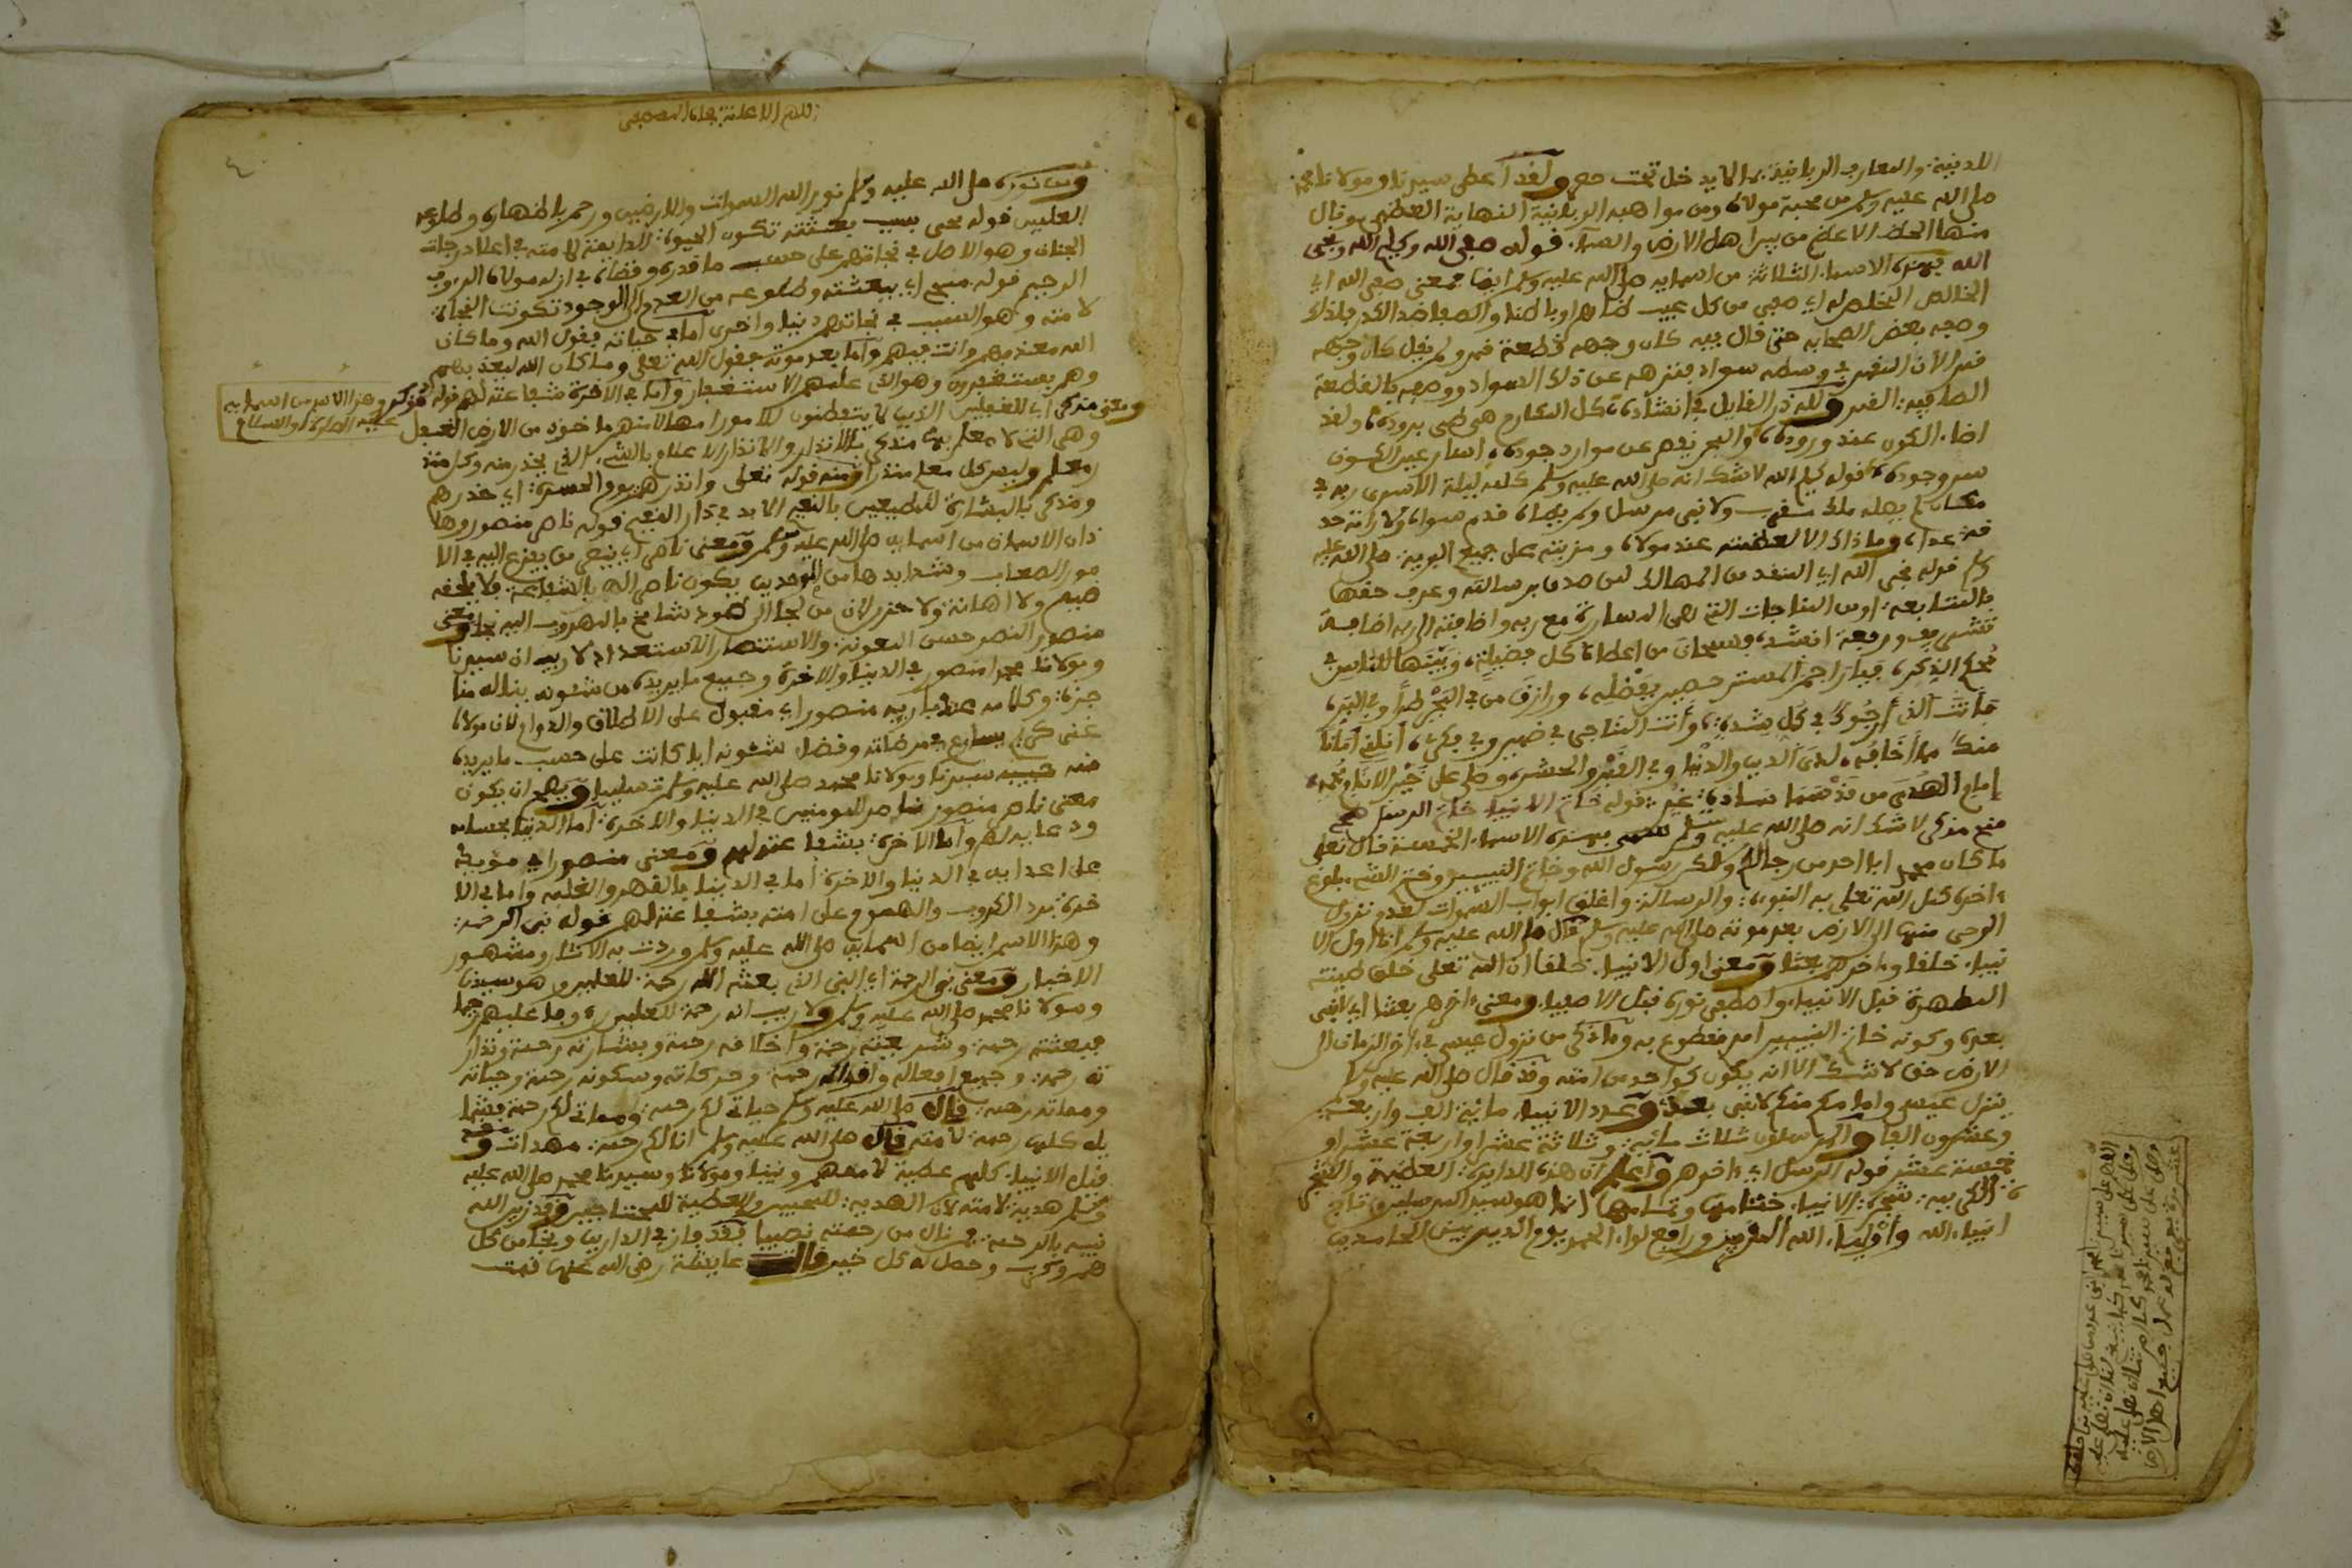 اللدنية والمعارف الربانية مما لا يدخل تحت حصر ولقد اعطى سيدنا ومولانا محمد
صلى الله عليه وسلم من محبة مولاه ومن مواهبه الربانية النهاية العظمى ونال
منها الحظ الاعظم من بين اهل الارض والسماء قوله صفي الله وكليم الله ونجي
الله بهذه الاسماء الثلاثة من اسمايه صلى الله عليه وسلم ايضا فمعنى صفي الله اي
الخالص المخلص له اي صفي من كل عيب ظاهرا وباطنا والصفا ضد الكدر ولذلك
وصفه بعض الصحابة حتى قال فيه كان وجهه قطعة قمر ولم يقل كان وجهه
قمر لان القمر في وسطه سواد فنزهه عن ذلك السواد ووصفه بالقطعة
الصافية القمر ولله در القايل في انشاده كل المكارم هي طي بروده ولقد
اضاء الكون عند وروده والبحر يقصر عن موارد جوده انسان عين الكون
سر وجوده قوله كليم الله لا شك انه صلى الله عليه وسلم كلمه ليلة الاسرى ربه في
مكان لم يصله ملك مقرب ولا نبي مرسل ولم يطاه قدم سواه ولا رامه احد
عداه وما ذاك الا لعظمته عند مولاه ومزيته على جميع البرية صلى الله عليه
وسلم قوله نجي الله اي المنقذ من المهالك لمن صدق برسالته وعرف حقها
بالمتابعة او من المناجات التي هي المسارة مع ربه واضافته الى ربه اضافة
تشريف ورفعة انشد فسبحان من اعطاه كل فضيلة وبينها للناس في
محكم الذكر فيا راحم المسترحمين بفضله ورازق من في البحر طرا وفي البر
فانت الذي ارجوك في كل شدة وانت المناجى في ضميري وفي فكري انلني امانا
منك مما اخافه لدى الدين والدنيا وفي القبر والحشر وصل على خير الانام محمد
امام الهدى من قد سما سادة قوله خاتم الانبياء خاتم الرسل محيي
منج مذكر لا شك انه صلى الله عليه وسلم سمي بهذه الاسماء الخمسة قال تعلى
ما كان محمد ابا احد من رجالكم ولكن رسول الله وخاتم النبيين وختم الشيء بلوغ
ءاخره كمل الله تعلى به النبوءة والرسالة واغلق ابواب السموات لفقد نزول
الوحي منها الى الارض بعد موته صلى الله عليه وسلم قال صلى الله عليه وسلم انا اول الا
نبياء خلقا وءاخرهم بعثا ومعنى اول الانبياء خلقا ان الله تعلى خلق طينته
المطهرة قبل الانبياء واصطفى نوره قبل الاصفياء ومعنى ءاخرهم بعثا اي لا نبي
بعده وكونه خاتم النبيين امر مقطوع به وما ذكر من نزول عيسى في ءاخر الزمان الى
الارض حق لا شك الا انه يكون كواحد من امته وقد قال صلى الله عليه وسلم
ينزل عيسى وامامكم منكم لا نبي بعدي وعدد الانبياء ماية الف واربعة
وعشرون الفا والمرسلون ثلاث ماية وثلاثة عشر او اربعة عشر او
خمسة عشر قوله الرسل اي ءاخرهم واعلم ان هذه الدايرة العظيمة والشجر
ة الكريمة شجرة الانبياء ختامها وتمامها انما هو سيد المرسلين وتاج
انبياء الله واولياء الله المقربين ورافع لواء الحمد يوم الدين بين الحامدين
اللهم صل على سيدنا محمد
وصل على سيدنا محمد
وصل على سيدنا محمد
وصل على سيدنا محمد
ومن نوره صلى الله عليه وسلم نور الله السموات والارضين ورحم باظهاره وطلوعه
العلمين قوله محيي بسبب بعثته تكون الحيوة الدايمة لامته في اعلا درجات
الجنان وهو الاصل في نجاتهم على حسب ما قدره وقضاه في ازله مولاه الرءوف
الرحيم قوله منج اي ببعثته وطلوعه من العدم الى الوجود تكونت النجاة
لامته وهو السبب في نجاتهم دنيا واخرى اما في حياته فبقول الله وما كان
الله معذبهم وانت فيهم واما بعد موته فبقول الله تعلى وما كان الله ليعذبهم
وهم يستغفرون وهو الذي علمهم الاستغفار واما في الاخرة فشفاعته لهم قوله مذكر
وهذا الاسم من اسمايه
عليه الصلاة والسلام
ومعنى مذكر اي للغافلين الذين لا يتفطنون للامور
وهي التي لا معلم بها منذر بالانذار والانذار الاعلام بالشيء الذي يحذر منه وكل منذر
معلم وليس كل معلم منذرا ومنه قوله تعلى وانذرهم يوم الحسرة اي حذرهم
ومذكر بالبشارة للمطيعين بالنعيم الابد في دار النعيم قوله ناصر منصور وها
ذان الاسمان من اسمايه صلى الله عليه وسلم ومعنى ناصر اي ينجي من يفزع اليه في الا
مور الصعاب وشدايدها من الموحدين يكون ناصرا له بالشفاعة فلا يلحقه
ضيم ولا اهانة ولا حزن لان من لجا الى طود شامخ بالهروب اليه نجا ومعنى
منصور النصر حسن المعونة والاستنصار الاستمداد لا ريب ان سيدنا
ومولانا محمدا منصور في الدنيا والاخرة وجميع ما يريده من شئونه يناله منا
جزة وكلامه عند باريه منصور اي مقبول على الاطلاق والدوام لان مولاه
غني كريم يسارع في مرضاته وقضاء شئونه ايا كانت على حسب ما يريده
منه حبيبه سيدنا ومولانا محمد صلى الله عليه وسلم تسليما ويصح ان يكون
معنى ناصر منصور ناصر للمومنين في الدنيا والاخرة اما الدنيا بحسامه
ودعايه لهم واما الاخرة بشفاعته لهم ومعنى منصور اي مؤيد
على اعدايه في الدنيا والاخرة اما في الدنيا بالقهر والغلبة واما في الا
خرة برد الكروب والهموم على امته بشفاعته لهم قوله نبي الرحمة
وهذا الاسم ايضا من اسمايه صلى الله عليه وسلم وردت به الاثار ومشهور
الاخبار ومعنى نبي الرحمة اي النبي الذي بعثه الله رحمة للعلمين وهو سيدنا
ومولانا محمد صلى الله عليه وسلم ولا ريب انه رحمة للعلمين
فبعثته رحمة وشريعته رحمة واخلاقه رحمة وبشارته رحمة ونذار
ته رحمة وجميع افعاله واقواله رحمة وحركاته وسكونه رحمة وحياته
ومماته رحمة قال صلى الله عليه وسلم حياتي لكم رحمة ومماتي لكم رحمة فشما
يله كلها رحمة لامته قال صلى الله عليه وسلم انا لكم رحمة مهدات
قبل الانبياء كلهم عطية لاممهم ونبينا ومولانا وسيدنا محمد صلى الله عليه
وسلم هدية لامته لان الهدية للمحبين والعطية للمحتاجين وقد زين الله
نبيه بالرحمة فمن نال من رحمته نصيبا فقد فاز في الدارين ونجا من كل
هم وكرب وحصل له كل خير قالت عايشة رضي الله عنها قمت